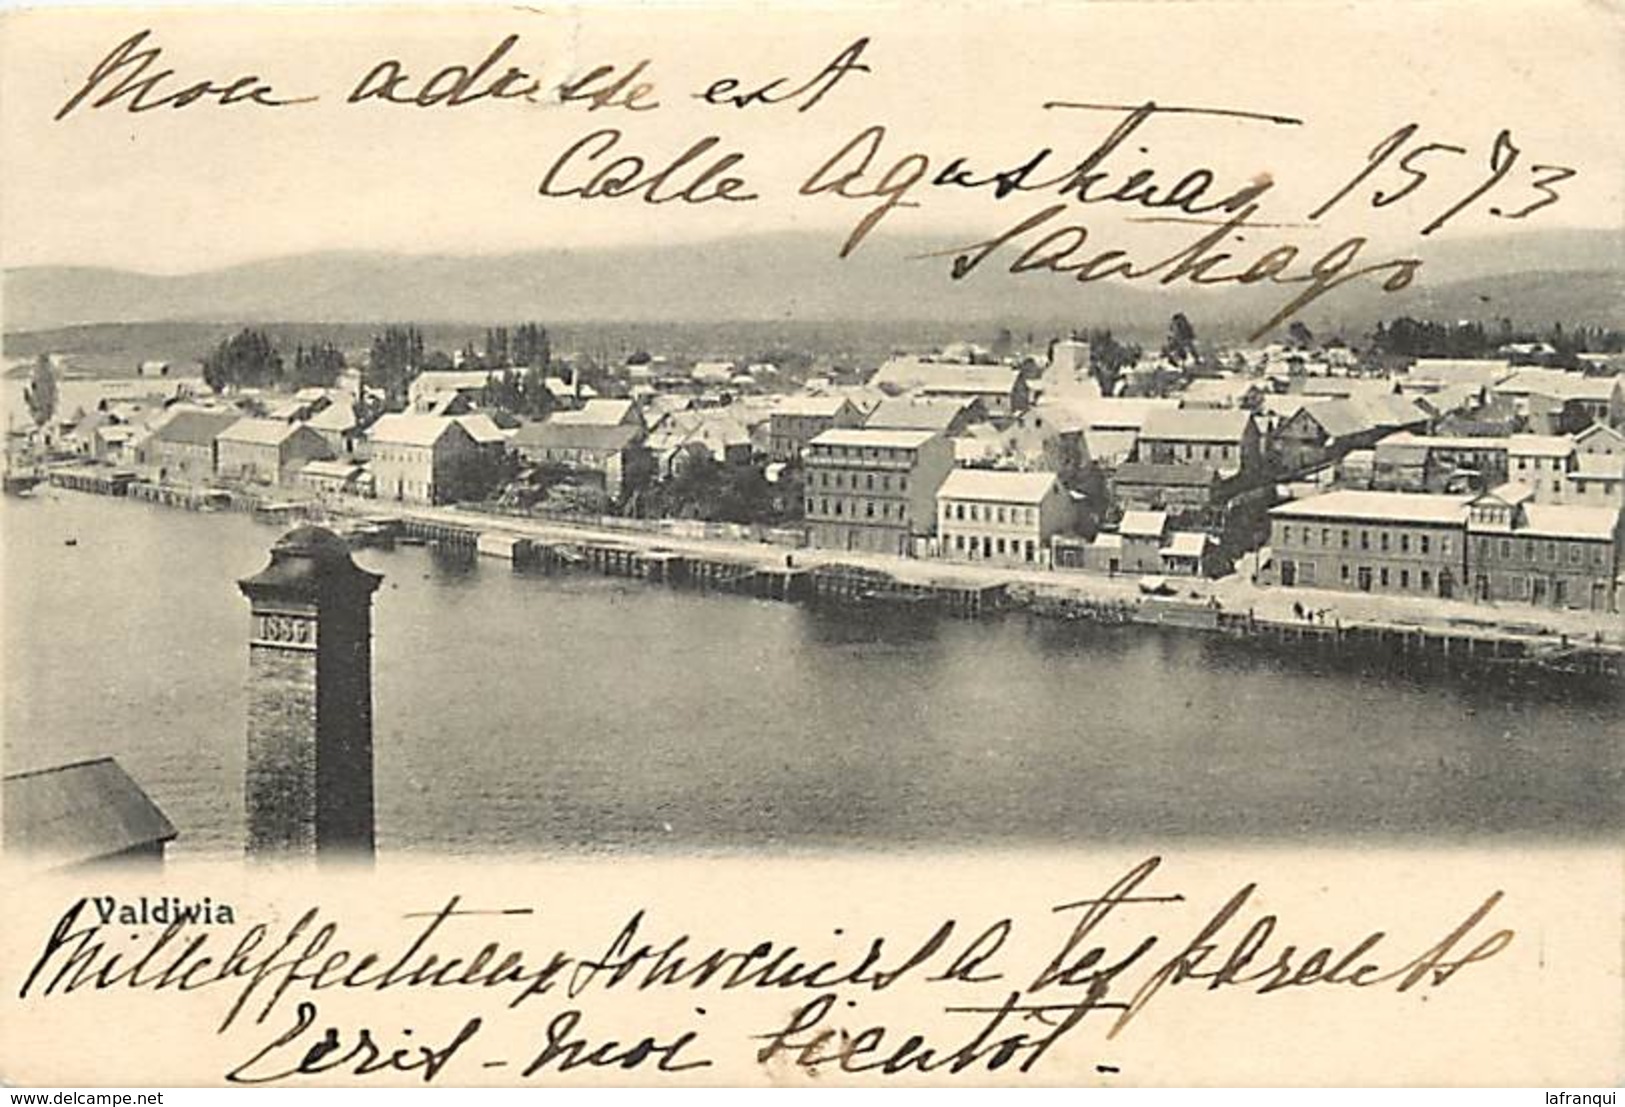 Mon adresse est
Calle Agustinas 1573
Santiago
1886
Valdivia
Mille affectueux souvenirs à tes parents
Ecris-moi bientôt.
www.delcampe.net
lafranqui